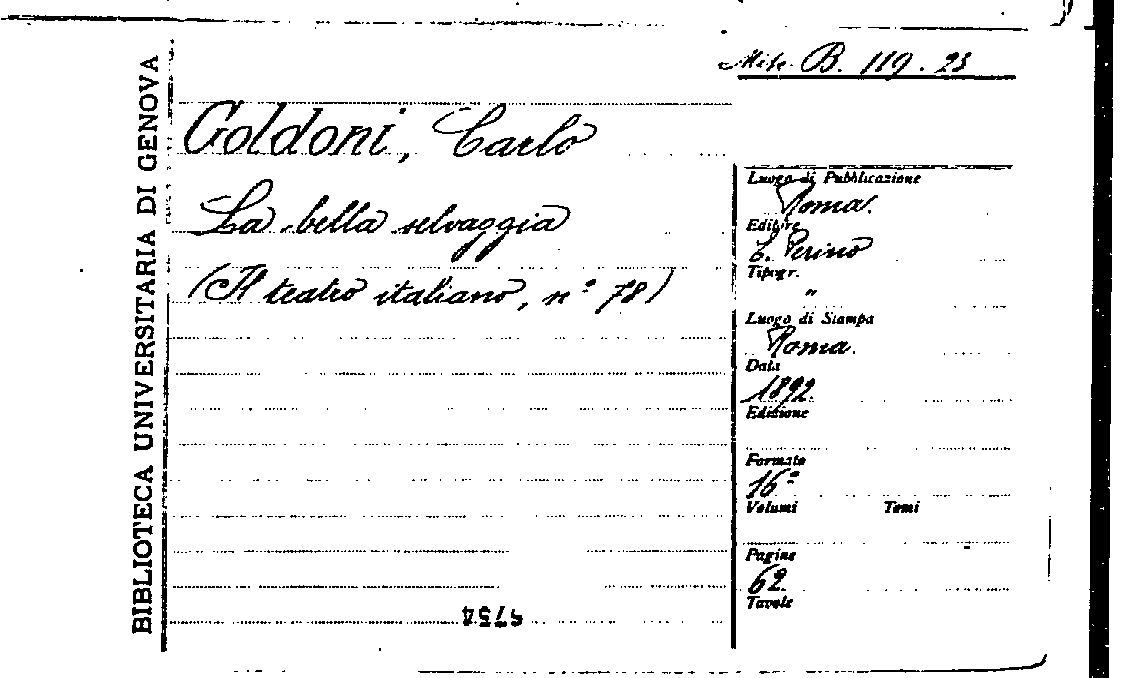 BIBLIOTECA UNIVERSITARIA DI GENOVA
Misc. B. 119. 23
Goldoni, Carlo
La bella selvaggia
(Il teatro italiano, n° 78)
Luogo di Pubblicazione
Roma.
Editore
E. Perino
Tipogr.
"
Luogo di Stampa
Roma.
Data
1892.
Edizione
Formato
16°
Volumi Tomi
Pagine
62.
Tavole